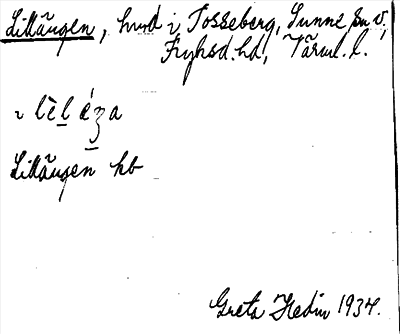 Lillängen, hmd i Tosseberg, Sunne sn v.,
Fryksd. hd, Värml. l.
i lèl ɛ́ŋa
Lillängen kb
Greta Hedin 1934.